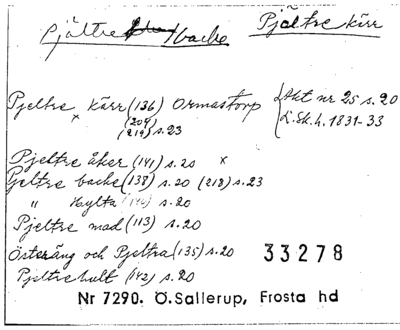 Pjältre backe Pjältre kärr
Pjeltre kärr (136) Ormastorp {Akt nr 25 s. 20
x (209) L. Sk. h. 1831-33
(219) s. 23
Pjeltre åker (141) s. 20 x
Pjeltre backe (138) s. 20 (218) s. 23
" Hylta (140) s. 20
Pjeltre mad (113) s. 20
Österäng och Pjeltra (135) s. 20 33278
Pjeltrehult (142) s. 20
Nr 7290. Ö. Sallerup, Frosta hd